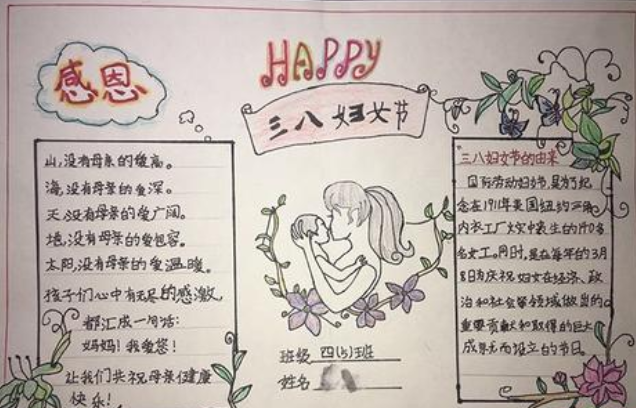 感恩
HAPPY
三八妇女节
山,没有母亲的爱高。
海,没有母亲的爱深。
天,没有母亲的爱广阔。
地,没有母亲的爱包容。
太阳,没有母亲的爱温暖。
孩子们心中有无尽的感激,
都汇成一句话:
妈妈!我爱您!
让我们共祝母亲健康
快乐!
班级 四(5)班
姓名
"三八妇女节的由来"
国际劳动妇女节,是为了纪
念在1911年美国纽约三角
内衣工厂火灾中丧生的140多
名女工。同时,是在每年的3月
8日为庆祝妇女在经济、政
治和社会等领域做出的
重要贡献和取得的巨大
成果而设立的节日。